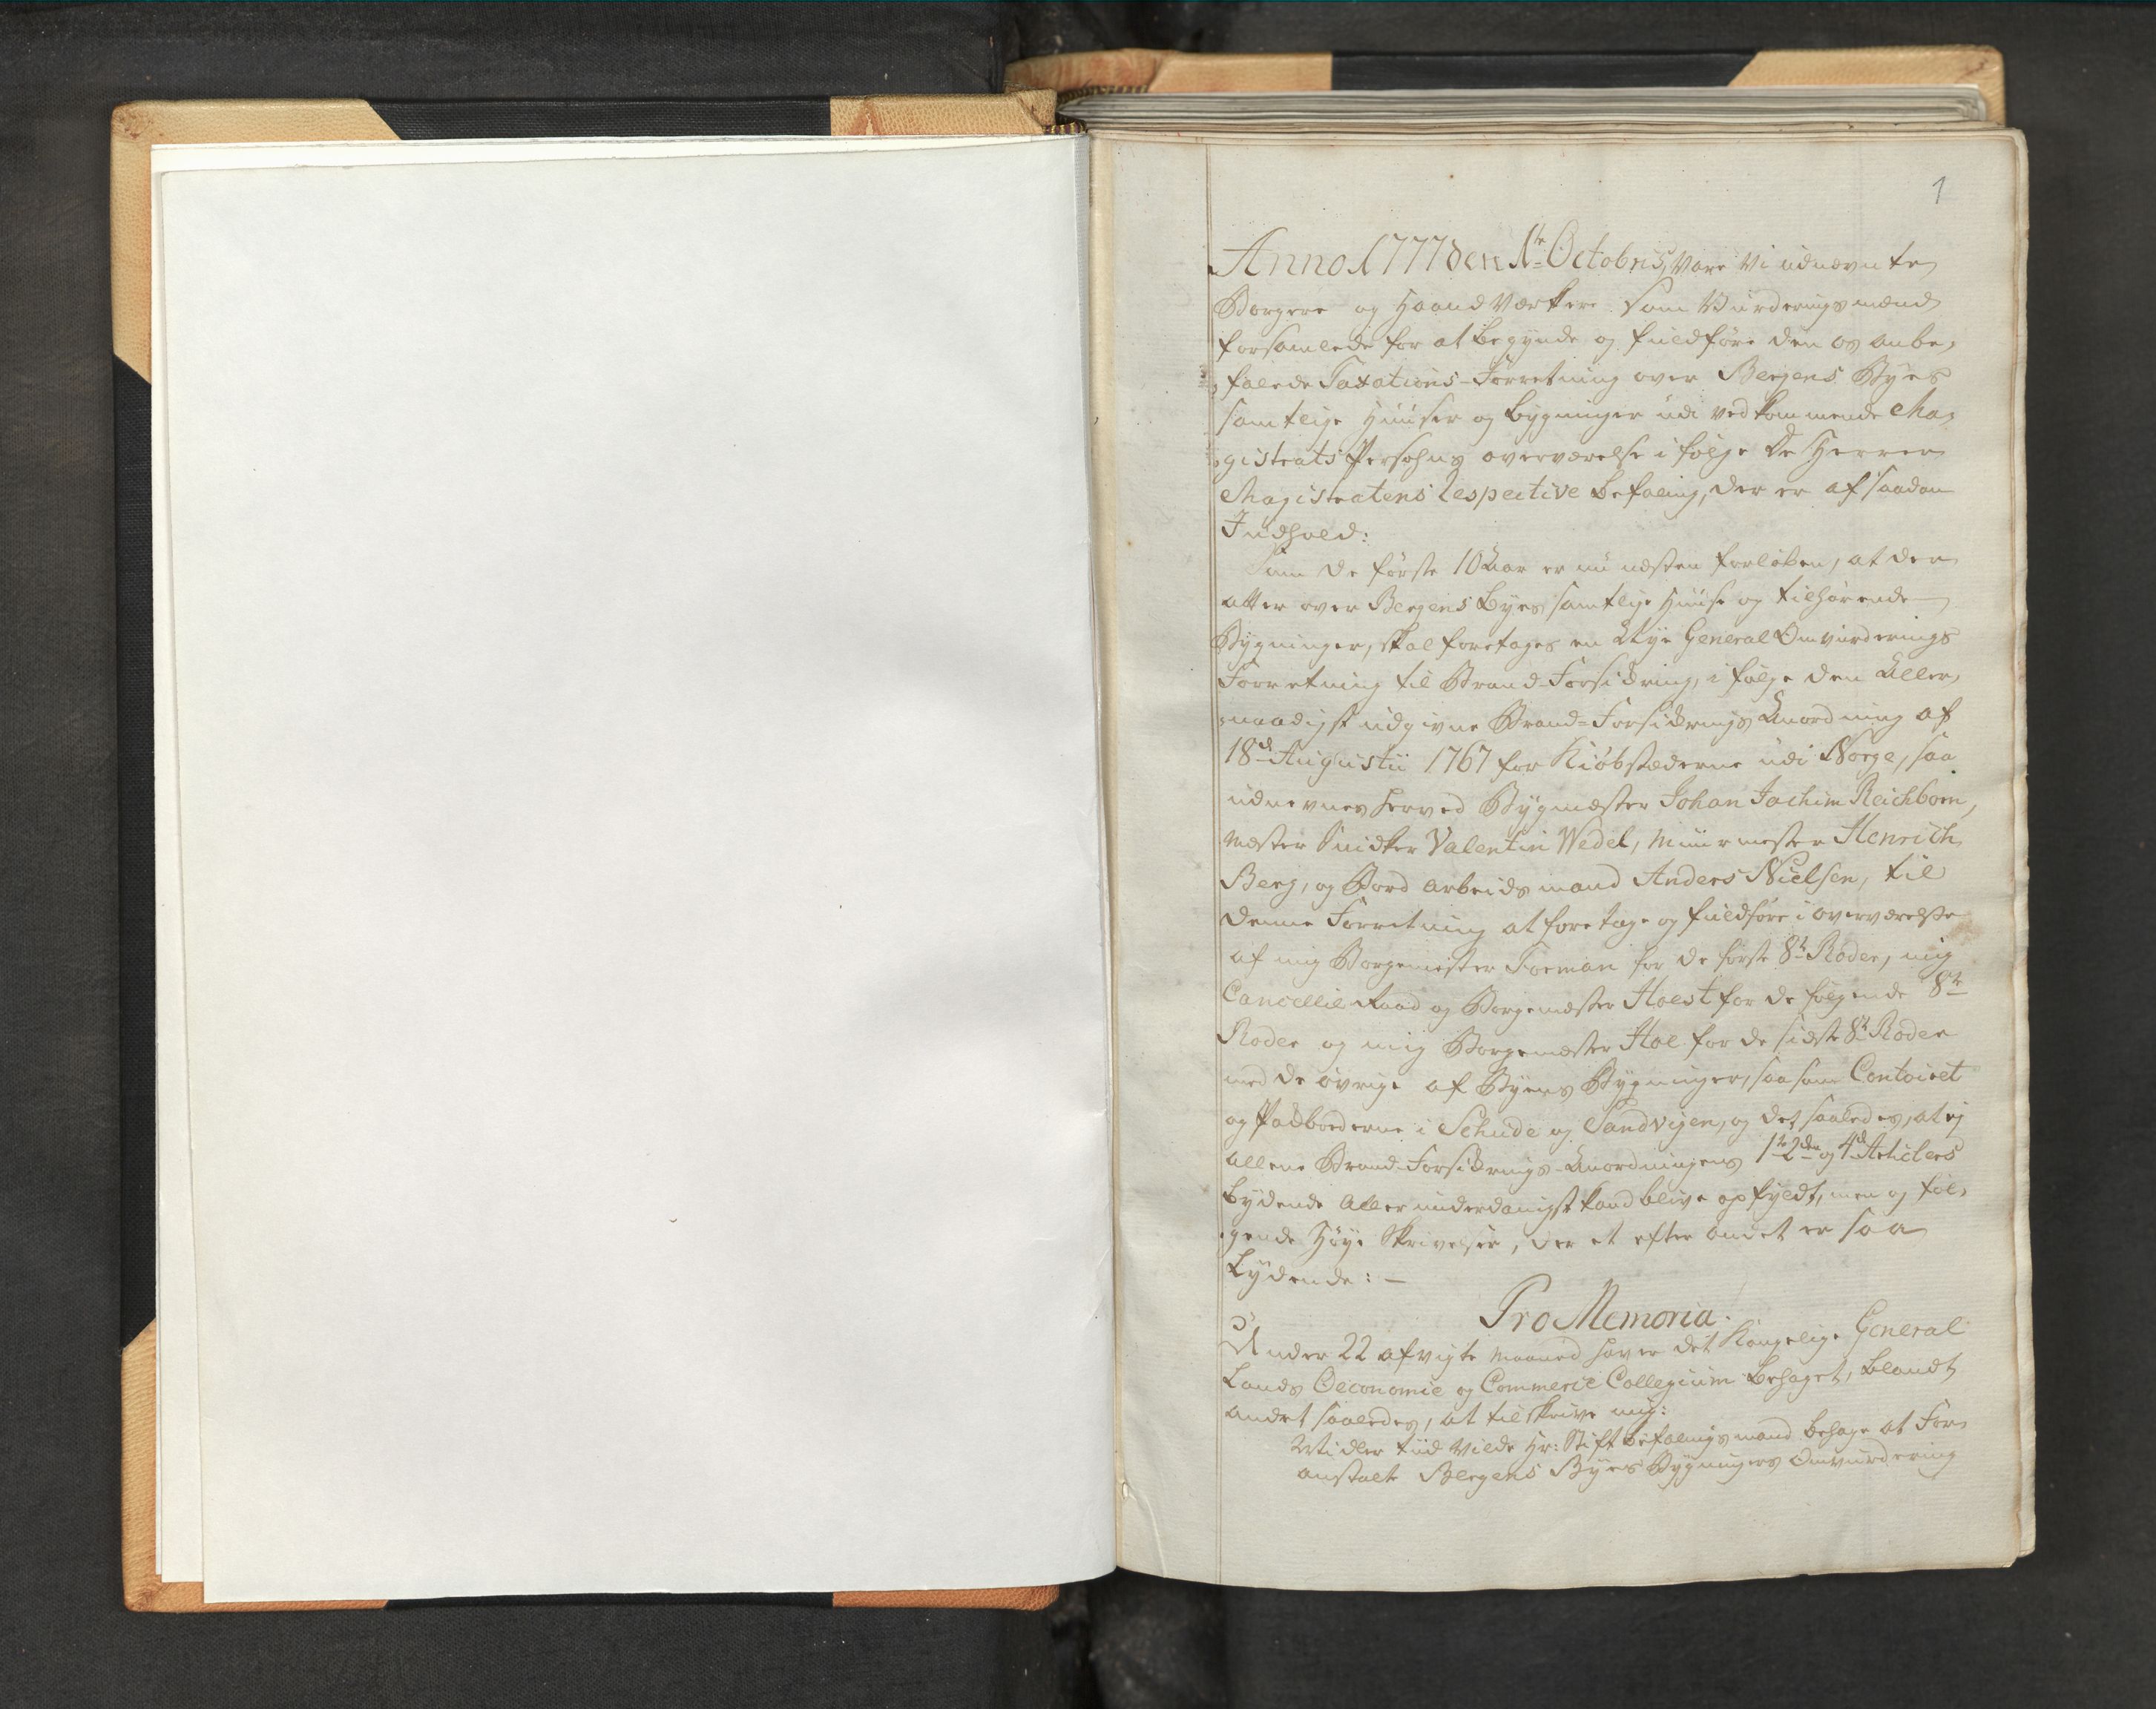 1
Anno 1777 den 1te Octobris, Vare Vi udnævnte
Borgere og Haandværkere som Vurderingsmænd
forsamlede for at begynde og fuldføre den os anbe,
,falede Taxations-Forretning over Bergens Byes
samtlige Huuser og bygninger udi vedkommende Ma,
,gistrats Persohns overværelse i følge De Herrer
Magistratens respective befaling, der er af saadan
Indhold:
Som de første 10 Aar er nu næsten forløben, at der
atter over Bergens Byes samtlige Huuse og tilhørende
Bygninger, skal foretages en Nye General Omvurderings
Forretning til Brand-Forsikring, i følge den Aller,
,naadigst udgivne Brand-Forsikrings Anordning af
18d Augustii 1767 for Kiøbstæderne udi Norge, saa
udnevnes herved Bygmester Johan Jachim Reichborn,
Mester Snidker Valentin Wedel, Muurmester Henrich
Berg, og Bord arbeidsmand Anders Nielsen, til
denne Forretning at foretage og fuldføre i overværelse
af mig Borgemester Forman for de første 8te Roder, mig
Cancellie Raad og Borgemester Hoest for de følgende 8te
Roder og mig Borgemester Hoe for de sidste 8te Roder
med de øvrige af Byens Bygninger, saasom Contoiret
og Pakboderne i Schude og Sandvigen, og det saaledes, at ej
allene Brand-Forsikrings-Anordningens 1te 2den og 4d Articlers
Lydende allerunderdanigst kand blive opfyldt, men og føl,
,gende Høye Skrivelser, der et efter andet er saa
Lydende: —
Pro Memoria.
Under 22 afvigte Maaned haver det Kongelige General
Lands Oeconomie og Commerce Collegium behaget, blandt
andet saaledes, at tilskrive mig:
Midler tiid Vilde Hr: Stiftbefalingsmand behage at For,
anstalte Bergens Byes Bygningers Omvurdering